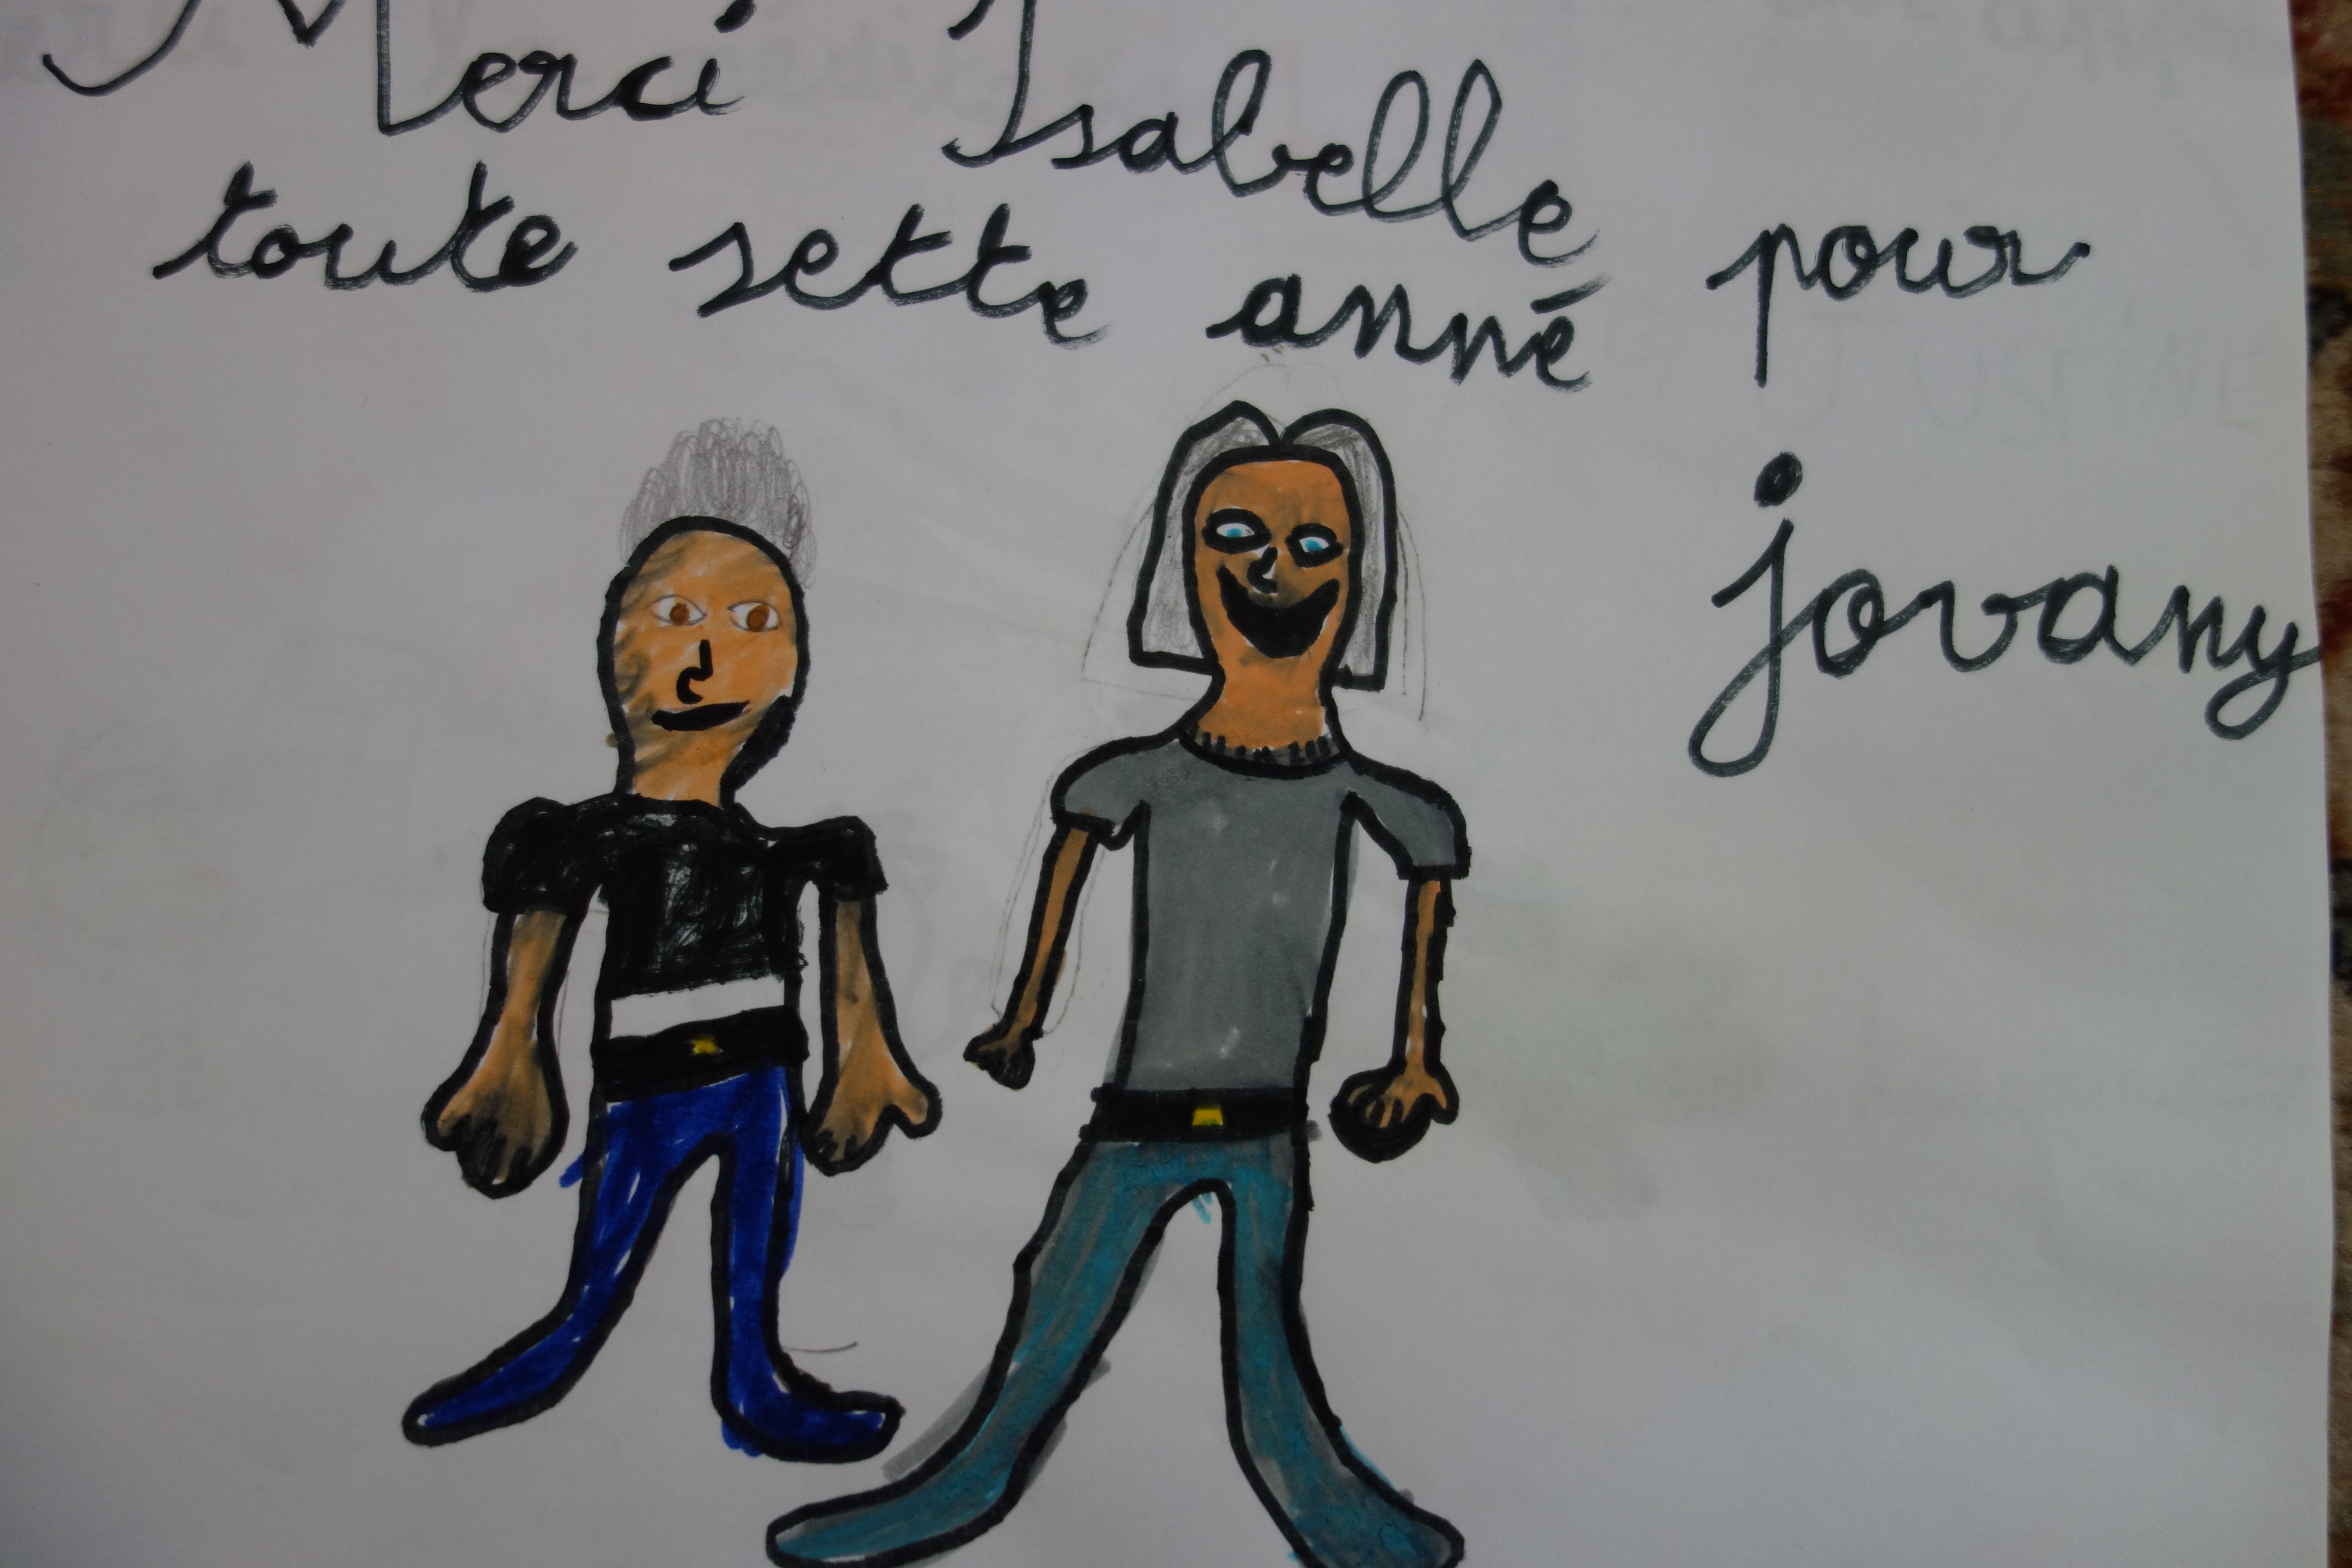 Merci Isabelle pour
toute sette anné
jovany